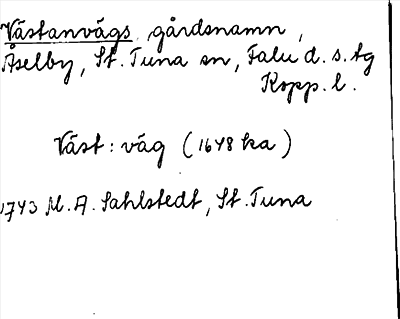 Västanvägs, gårdsnamn,
Åselby, St. Tuna sn, Falu d. s. tg
Kopp. l.
Väst: väg (1648 ka)
1743 M. A. Sahlstedt, St. Tuna